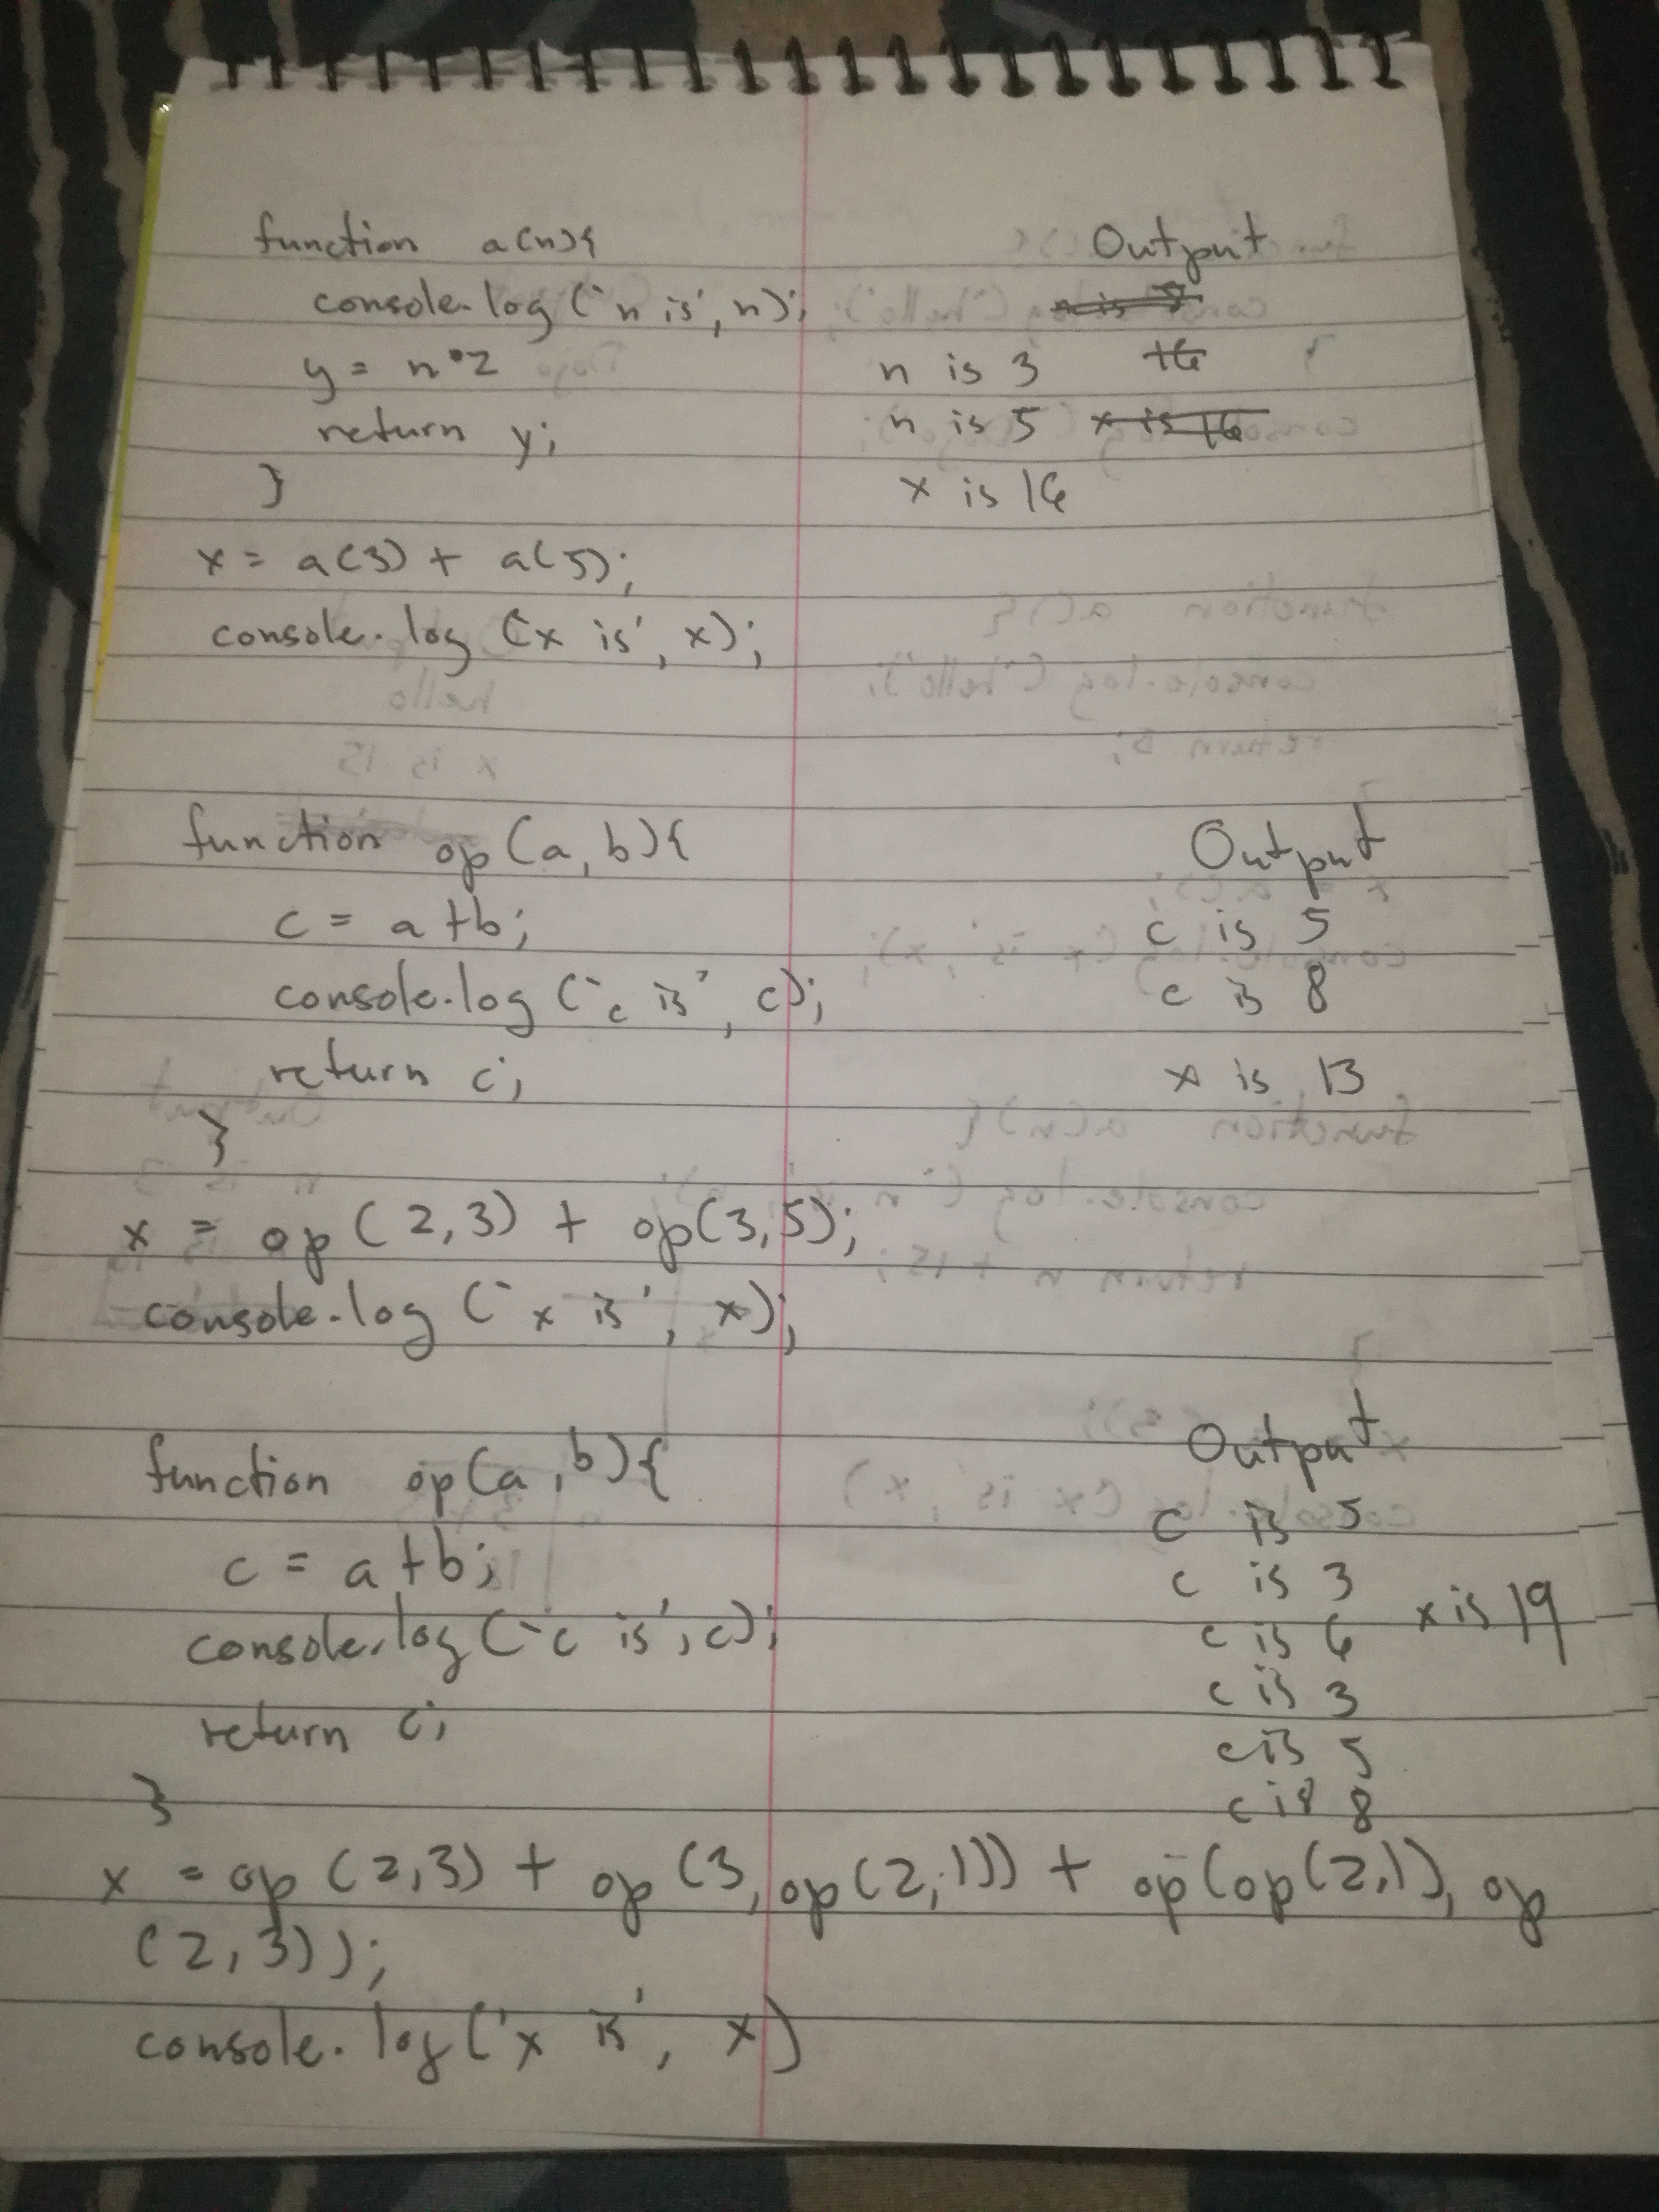 function a(n){
console.log('n is', n);
y = n*2
return y;
}
x = a(3) + a(5);
console.log('x is', x);
Output
n is 3
16
n is 5 x is 16
x is 16
function op(a,b){
c = a+b;
console.log('c is', c);
return c;
}
x = op(2,3) + op(3,5);
console.log('x is', x);
Output
c is 5
c is 8
x is 13
function op(a,b){
c = a+b;
console.log('c is', c);
return c;
}
x = op(2,3) + op(3, op(2,1)) + op(op(2,1), op
(2,3));
console.log('x is', x)
Output
c is 5
c is 3
c is 6 x is 19
c is 3
c is 5
c is 8